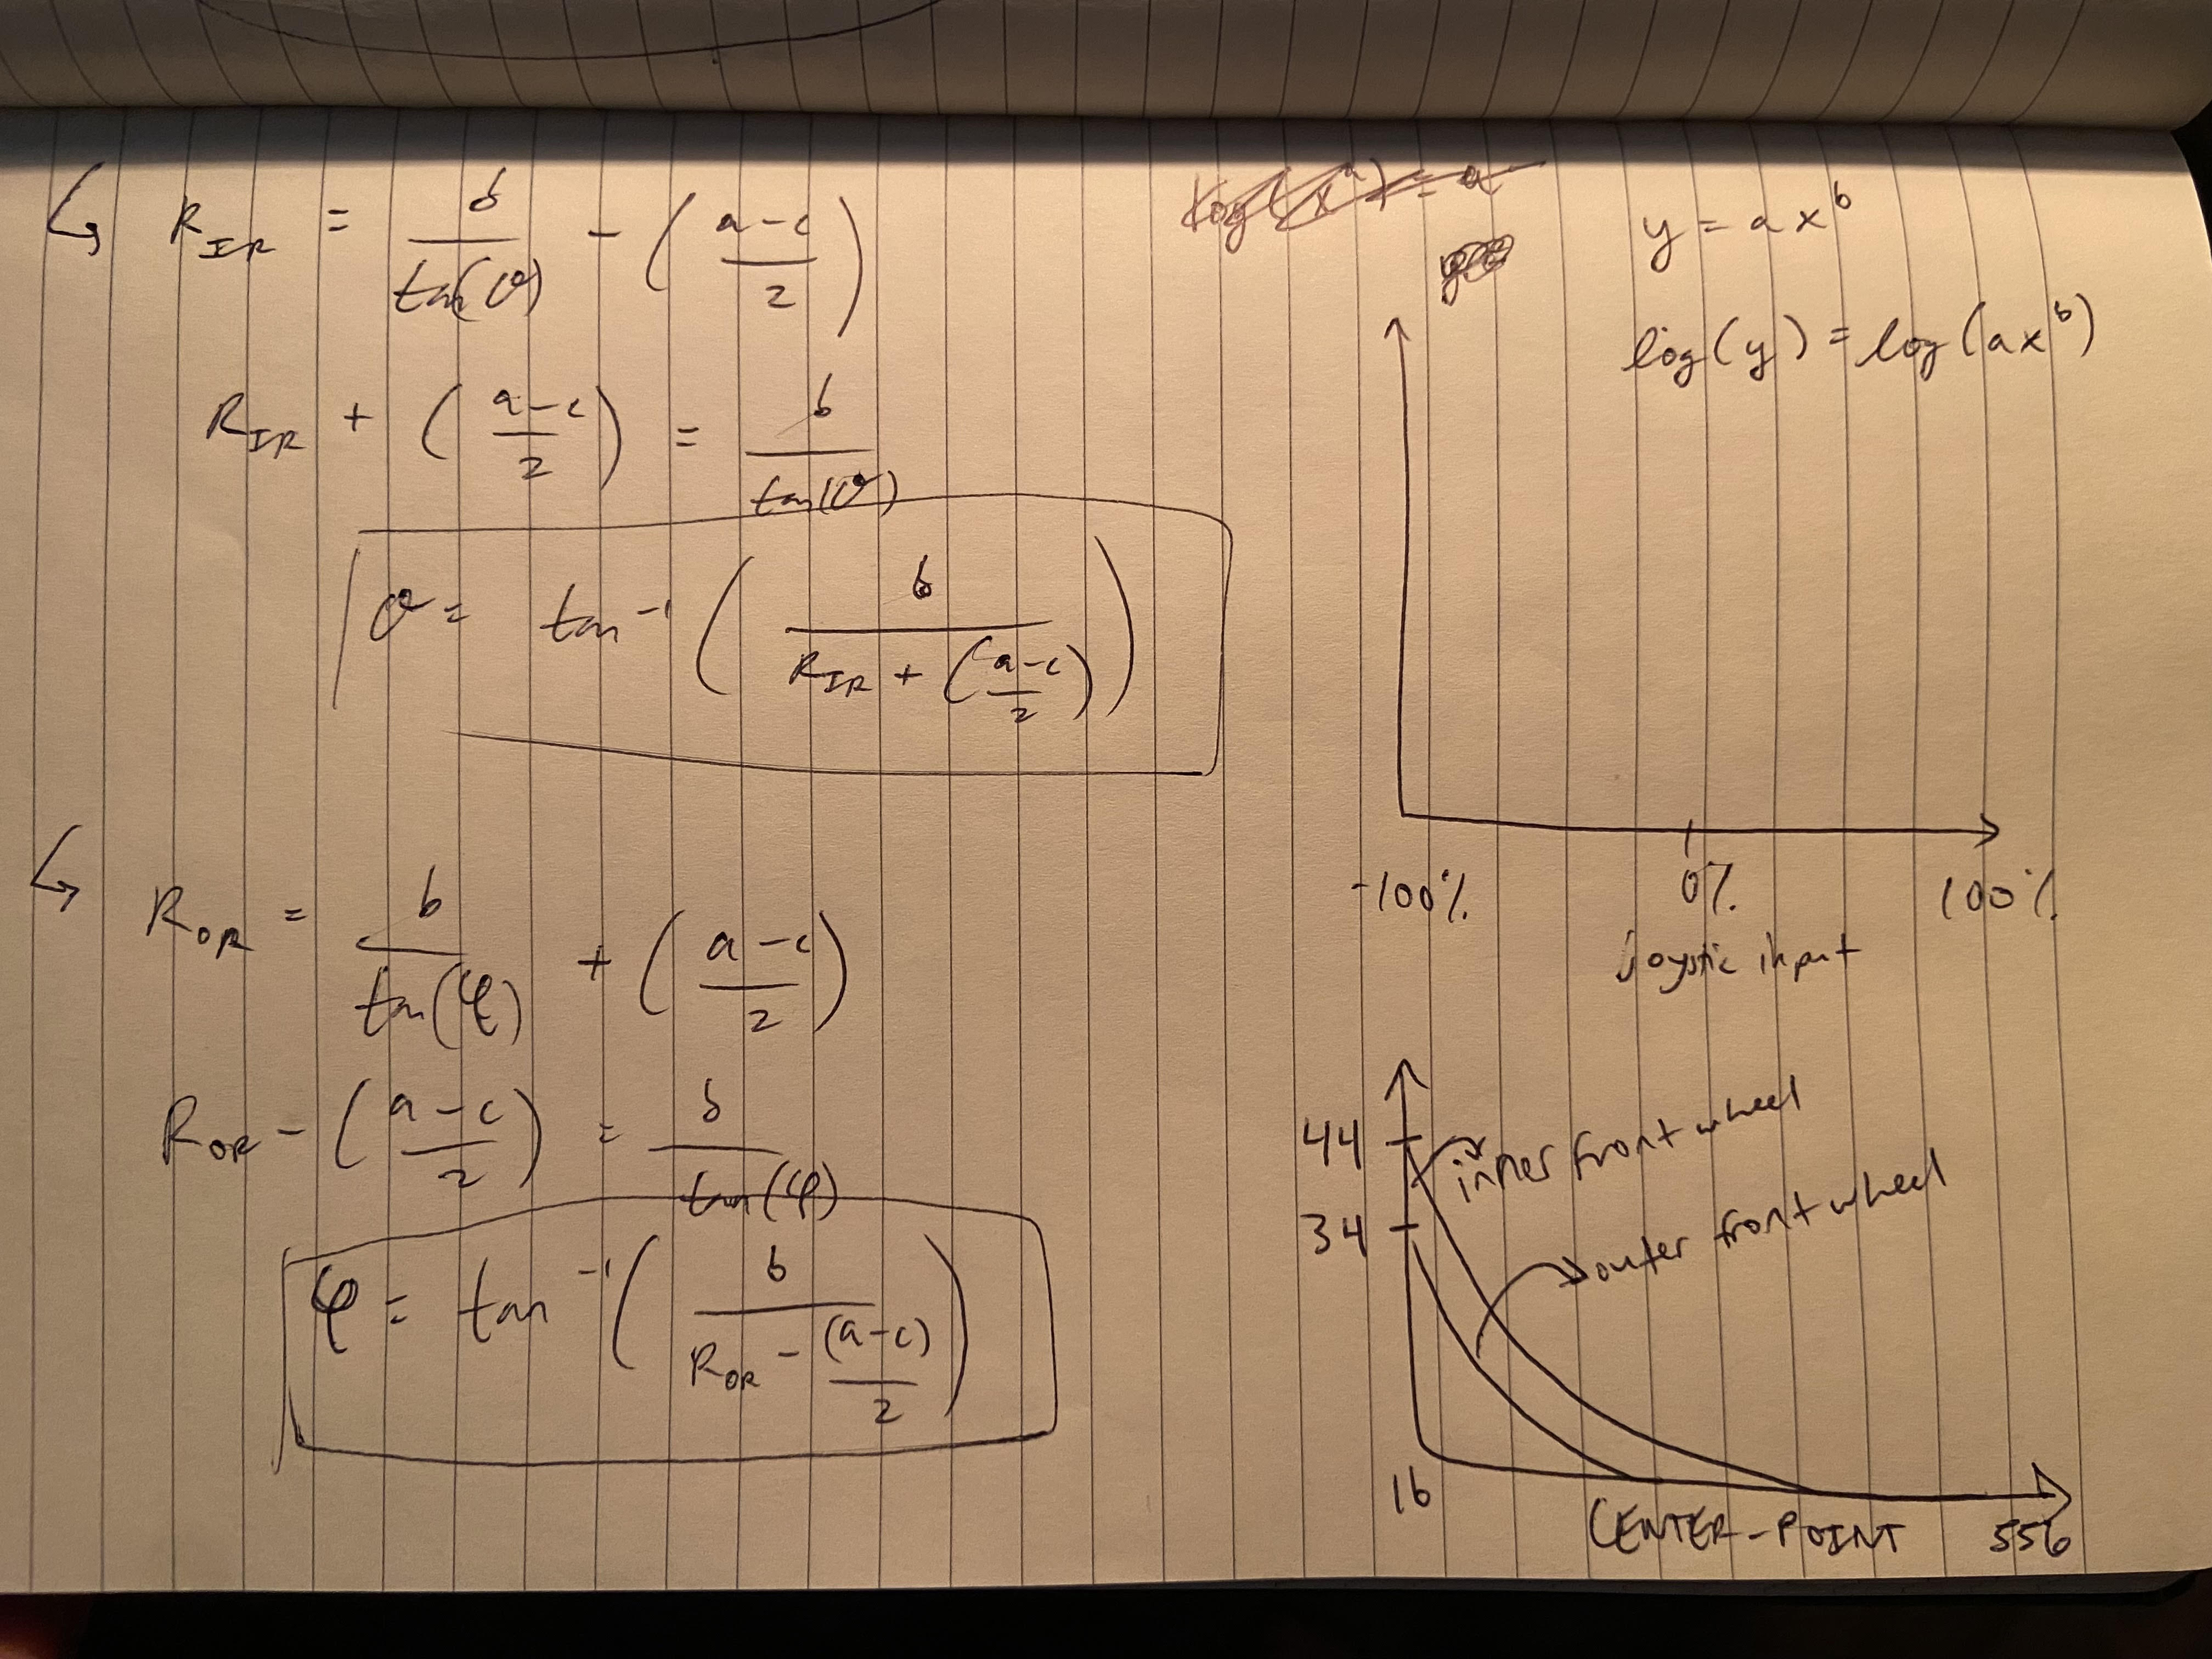 ↳ R_IR = b / tan(θ) − ((a−c) / 2)
R_IR + ((a−c) / 2) = b / tan(θ)
θ = tan⁻¹ (b / (R_IR + ((a−c) / 2)))
↳ R_OR = b / tan(φ) + ((a−c) / 2)
R_OR − ((a−c) / 2) = b / tan(φ)
φ = tan⁻¹ (b / (R_OR − (a−c) / 2))
log(x^a) = a
y = ax^b
log(y) = log(ax^b)
-100% 0% 100%
joystic input
44
inner front wheel
34
outer front wheel
16
CENTER-POINT
556